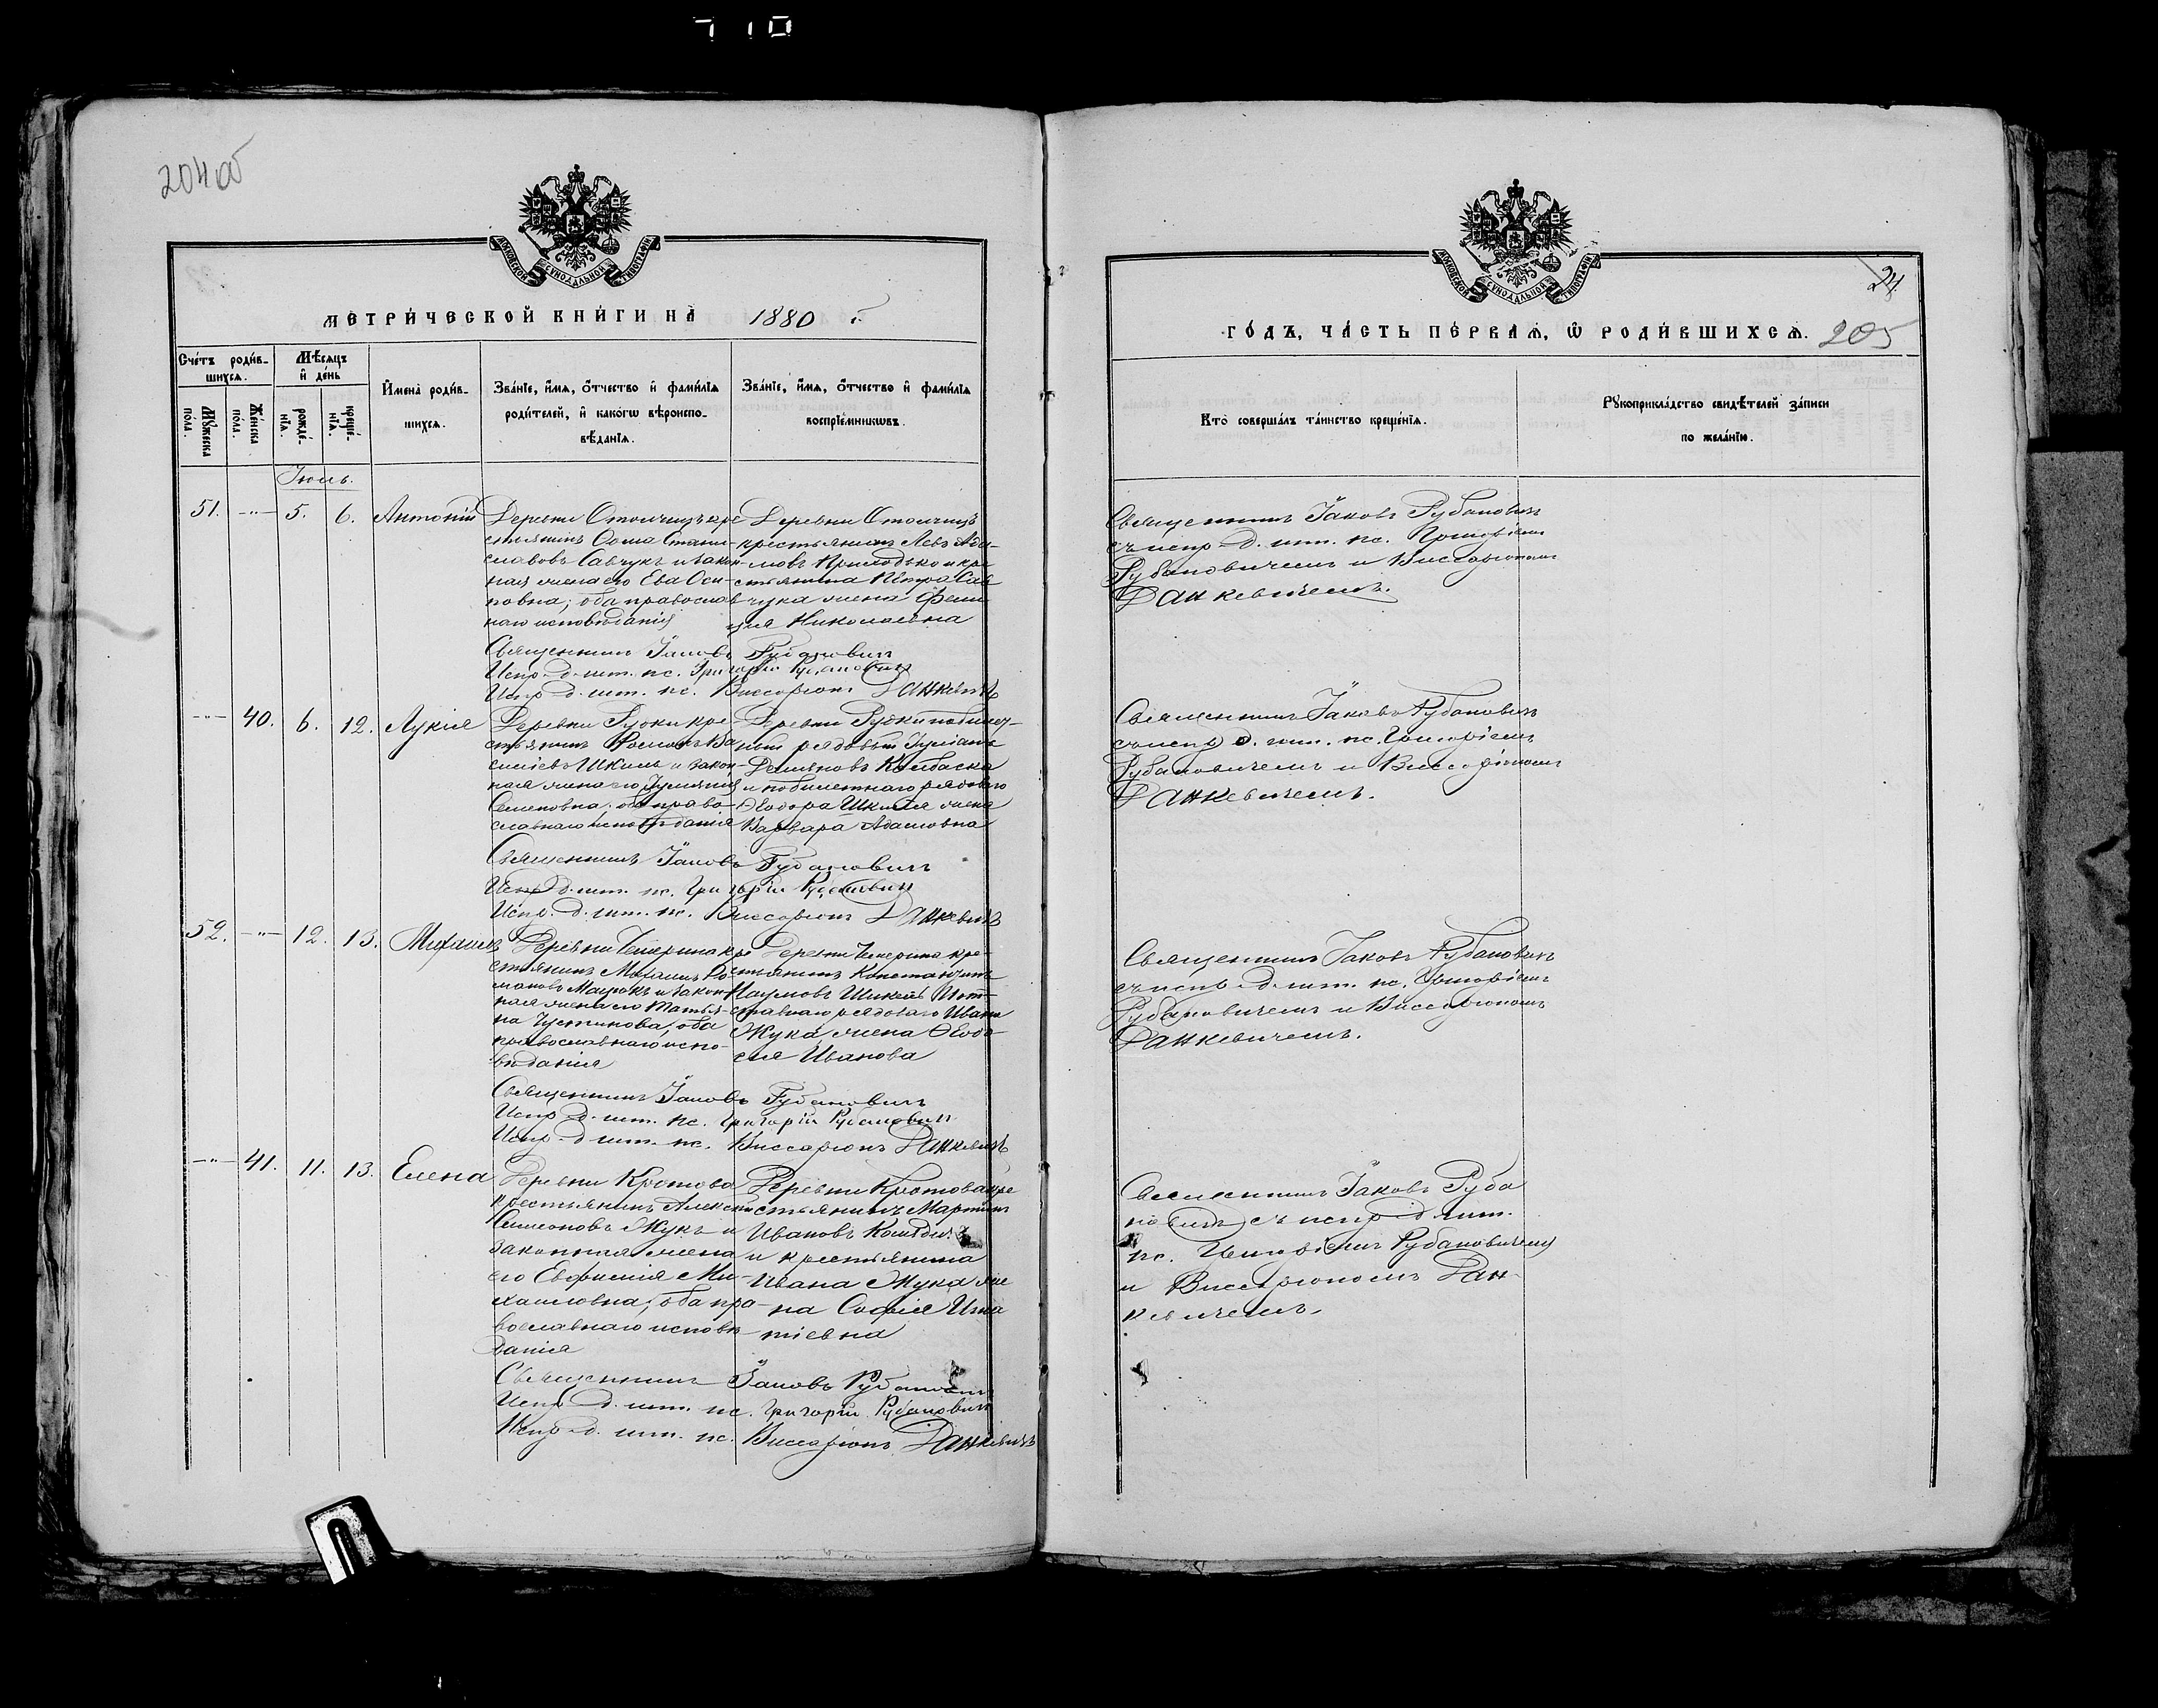 710
204об
МОСКОВСКОЙ СѴНОДАЛЬНОЙ ТИПОГРАФІИ
МЕТРИ́ЧЕСКОЙ КНИ́ГИ НА 1880 г.
Сче́тъ роди́вшихсѧ.
Мѣ́сѧцъ и҆ де́нь
И҆мена̀ роди́вшихсѧ.
Зва́нїе, и҆́мѧ, ѻ҆́тчество и҆ фами́лїѧ родителей, и҆ како́гѡ вѣроисповѣ́данїѧ.
Зва́нїе, и҆́мѧ, ѻ҆́тчество и҆ фами́лїѧ воспрїе́мниковъ.
Мꙋ́жеска по́ла.
Же́нска по́ла.
рожде́нїѧ.
креще́нїѧ.
Іюль.
51. -"- 5. 6. Антоній
Деревни кре-
стьянинъ Ѳома Стани-
славовъ Савчукъ и закон-
ная жена его Ева Оси-
повна; оба православ-
наго исповѣданія
Деревни
крестьянинъ Левъ Ада-
мовъ Приходько и кре-
стьянина Петра Сав-
чука жена
Николаевна
Священникъ Іаковъ Рубановичъ
Испр. д. шт. пс. Григорій Рубановичъ
Испр. д. шт. пс. Виссаріонъ Данкевичъ
-"- 40. 6. 12. Лукія
Деревни Рудки кре-
стьянинъ Романъ Ва-
силіевъ Шкиль и закон-
ная жена его Іуліанія
Семеновна; оба право-
славнаго исповѣданія
Деревни Рудки побилет-
ный рядовый Іуліанъ
Демяновъ Колбаска
и побилетнаго рядоваго
Ѳеодора Шкиля жена
Варвара Адамовна
Священникъ Іаковъ Рубановичъ
Испр. д. шт. пс. Григорій Рубановичъ
Испр. д. шт. пс. Виссаріонъ Данкевичъ
52. -"- 12. 13. Михаилъ
Деревни кре-
стьянинъ Михаилъ Ро-
мановъ и закон-
ная жена его Татья-
на Іустинова; оба
православнаго испо-
вѣданія
Деревни кре-
стьянинъ Константинъ
Наумовъ и от-
ставнаго рядоваго Ивана
Жука жена Ѳеодо-
сія Иванова
Священникъ Іаковъ Рубановичъ
Испр. д. шт. пс. Григорій Рубановичъ
Испр. д. шт. пс. Виссаріонъ Данкевичъ
-"- 41. 11. 13. Елена
Деревни Кротова
крестьянинъ Алексій
Симеоновъ Жукъ и
законная жена
его Евфимія Ми-
хаиловна; оба пра-
вославнаго исповѣ-
данія
Деревни Кротова кре-
стьянинъ Мартинъ
Ивановъ
и крестьянина
Ивана Жука же-
на Софія Игна-
тіевна
Священникъ Іаковъ Рубановичъ
Испр. д. шт. пс. Григорій Рубановичъ
Испр. д. шт. пс. Виссаріонъ Данкевичъ
24.
МОСКОВСКОЙ СѴНОДАЛЬНОЙ ТИПОГРАФІИ
ГО́ДЪ, ЧА́СТЬ ПЕ́РВАѦ, Ѡ҆ РОДИ́ВШИХСѦ. 205
Кто̀ соверша́лъ та́инство креще́нїѧ.
Рꙋкоприкла́дство свидѣ́телей за́писи по жела́нїю.
Священникъ Іаковъ Рубановичъ
съ испр. д. шт. пс. Григоріемъ
Рубановичемъ и Виссаріономъ
Данкевичемъ.
Священникъ Іаковъ Рубановичъ
съ испр. д. шт. пс. Григоріемъ
Рубановичемъ и Виссаріономъ
Данкевичемъ.
Священникъ Іаковъ Рубановичъ
съ испр. д. шт. пс. Григоріемъ
Рубановичемъ и Виссаріономъ
Данкевичемъ.
Священникъ Іаковъ Руба
новичъ съ испр. д. шт.
пс. Григоріемъ Рубановичемъ
и Виссаріономъ Дан-
кевичемъ.